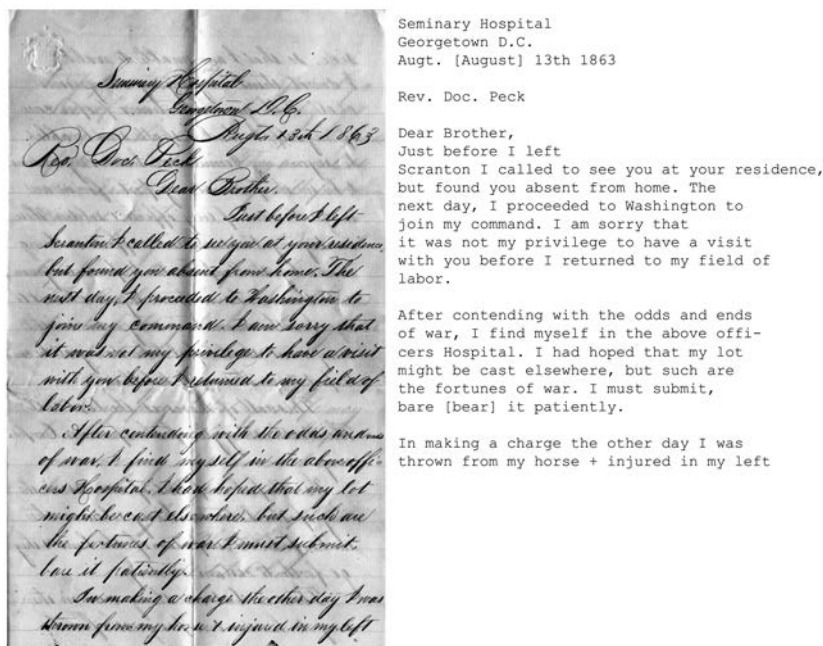 Seminary Hospital
Georgetown D.C.
Augt. 13th 1863
Rev. Doc. Peck
Dear Brother.
Just before I left
Scranton I called to see you at your residence,
but found you absent from home. The
next day, I proceeded to Washington to
join my command. I am sorry that
it was not my privilege to have a visit
with you before I returned to my field of
labor.
After contending with the odds and ends
of war, I find myself in the above offi-
cers Hospital. I had hoped that my lot
might be cast elsewhere, but such are
the fortunes of war I must submit,
bare it patiently.
In making a charge the other day I was
thrown from my horse + injured in my left
Seminary Hospital
Georgetown D.C.
Augt. [August] 13th 1863
Rev. Doc. Peck
Dear Brother,
Just before I left
Scranton I called to see you at your residence,
but found you absent from home. The
next day, I proceeded to Washington to
join my command. I am sorry that
it was not my privilege to have a visit
with you before I returned to my field of
labor.
After contending with the odds and ends
of war, I find myself in the above offi-
cers Hospital. I had hoped that my lot
might be cast elsewhere, but such are
the fortunes of war. I must submit,
bare [bear] it patiently.
In making a charge the other day I was
thrown from my horse + injured in my left